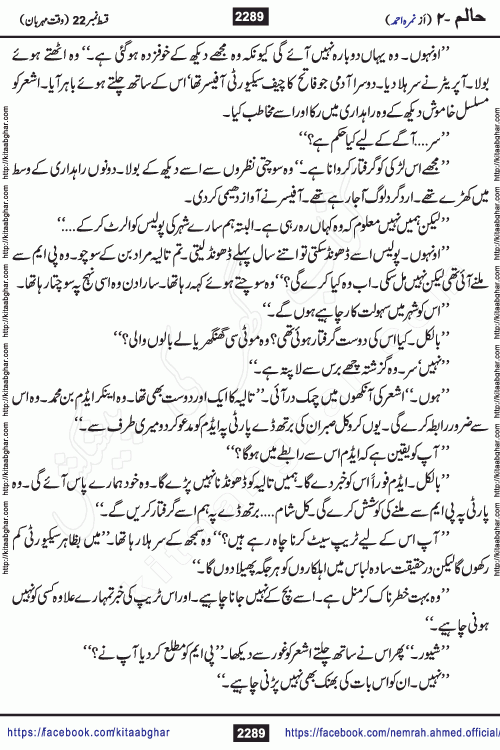 قسط نمبر 22 (وقت مہربان)
2289
حالم -۲ (از نمرہ احمد)
”اونہوں۔ وہ یہاں دوبارہ نہیں آئے گی کیونکہ وہ مجھے دیکھ کے خوفزدہ ہو گئی ہے۔“ وہ اٹھتے ہوئے
بولا۔ آپریٹر نے سر ہلا دیا۔ دوسرا آدمی جو فاتح کا چیف سیکیورٹی آفیسر تھا‘ اس کے ساتھ چلتے ہوئے باہر آیا۔ اشعر کو
مسلسل خاموش دیکھ کے وہ راہداری میں رکا اور اسے مخاطب کیا۔
”سر.... آگے کے لیے کیا حکم ہے؟“
”مجھے اس لڑکی کو گرفتار کروانا ہے۔“ وہ سوچتی نظروں سے اسے دیکھ کے بولا۔ دونوں راہداری کے وسط
میں کھڑے تھے۔ اردگرد لوگ آ جا رہے تھے۔ آفیسر نے آواز دھیمی کر دی۔
”لیکن ہمیں نہیں معلوم کہ وہ کہاں رہ رہی ہے۔ البتہ ہم سارے شہر کی پولیس کو الرٹ کر کے....“
”اونہوں۔ پولیس اسے ڈھونڈ سکتی تو اتنے سال پہلے ڈھونڈ لیتی۔ تم تالیہ مراد بن کے سوچو۔ وہ پی ایم سے
ملنے آئی تھی لیکن نہیں مل سکی۔ اب وہ کیا کرے گی؟“ وہ سوچتے ہوئے کہہ رہا تھا۔ سارا دن وہ اسی نہج پہ سوچتا رہا تھا۔
”اس کو شہر میں سہولت کار چاہیے ہوں گے۔“
”بالکل۔ کیا اس کی دوست گرفتار ہوئی تھی؟ وہ موٹی سی گھنگھریالے بالوں والی؟“
”نہیں‘ سر۔ وہ گزشتہ چھے برس سے لاپتہ ہے۔“
”ہوں۔“ اشعر کی آنکھوں میں چمک در آئی۔ ”تالیہ کا ایک اور دوست بھی تھا۔ وہ اینکر ایڈم بن محمد۔ وہ اس
سے ضرور رابطہ کرے گی۔ یوں کرو کل صبران کی برتھ ڈے پارٹی پہ ایڈم کو مدعو کر دو میری طرف سے۔“
”آپ کو یقین ہے کہ ایڈم اس سے رابطے میں ہو گا؟“
”بالکل۔ ایڈم فوراً اس کو خبر دے گا۔ ہمیں تالیہ کو ڈھونڈنا نہیں پڑے گا۔ وہ خود ہمارے پاس آئے گی۔ وہ
پارٹی پہ پی ایم سے ملنے کی کوشش کرے گی۔ کل شام.... برتھ ڈے پہ ہم اسے گرفتار کریں گے۔“
”آپ اس کے لیے ٹریپ سیٹ کرنا چاہ رہے ہیں؟“ وہ سمجھ کے سر ہلا رہا تھا۔ ”میں بظاہر سیکیورٹی کم
رکھوں گا لیکن در حقیقت سادہ لباس میں اہلکاروں کو ہر جگہ پھیلا دوں گا۔“
”وہ بہت خطرناک کرمنل ہے۔ اسے بچ کے نہیں جانا چاہیے۔ اور اس ٹریپ کی خبر تمہارے علاوہ کسی کو نہیں
ہونی چاہیے۔“
”شیور۔“ پھر اس نے ساتھ چلتے اشعر کو غور سے دیکھا۔ ”پی ایم کو مطلع کر دیا آپ نے؟“
”نہیں۔ ان کو اس بات کی بھنک بھی نہیں پڑنی چاہیے۔“
http://kitaabghar.com http://kitaabghar.com http://kitaabghar.com http://kitaabghar.com http://kitaabghar.com
http://kitaabghar.com http://kitaabghar.com http://kitaabghar.com http://kitaabghar.com http://kitaabghar.com
https://facebook.com/kitaabghar
2289
https://facebook.com/nemrah.ahmed.official/